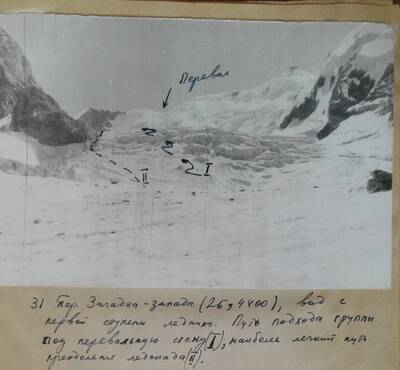 Перевал
I
II
31 Пер. Загадка-западн. (2Б, 4400), вид с
первой ступени ледника. Путь подхода группы
под перевальную стену (I), наиболее легкий путь
преодоления ледопада (II).